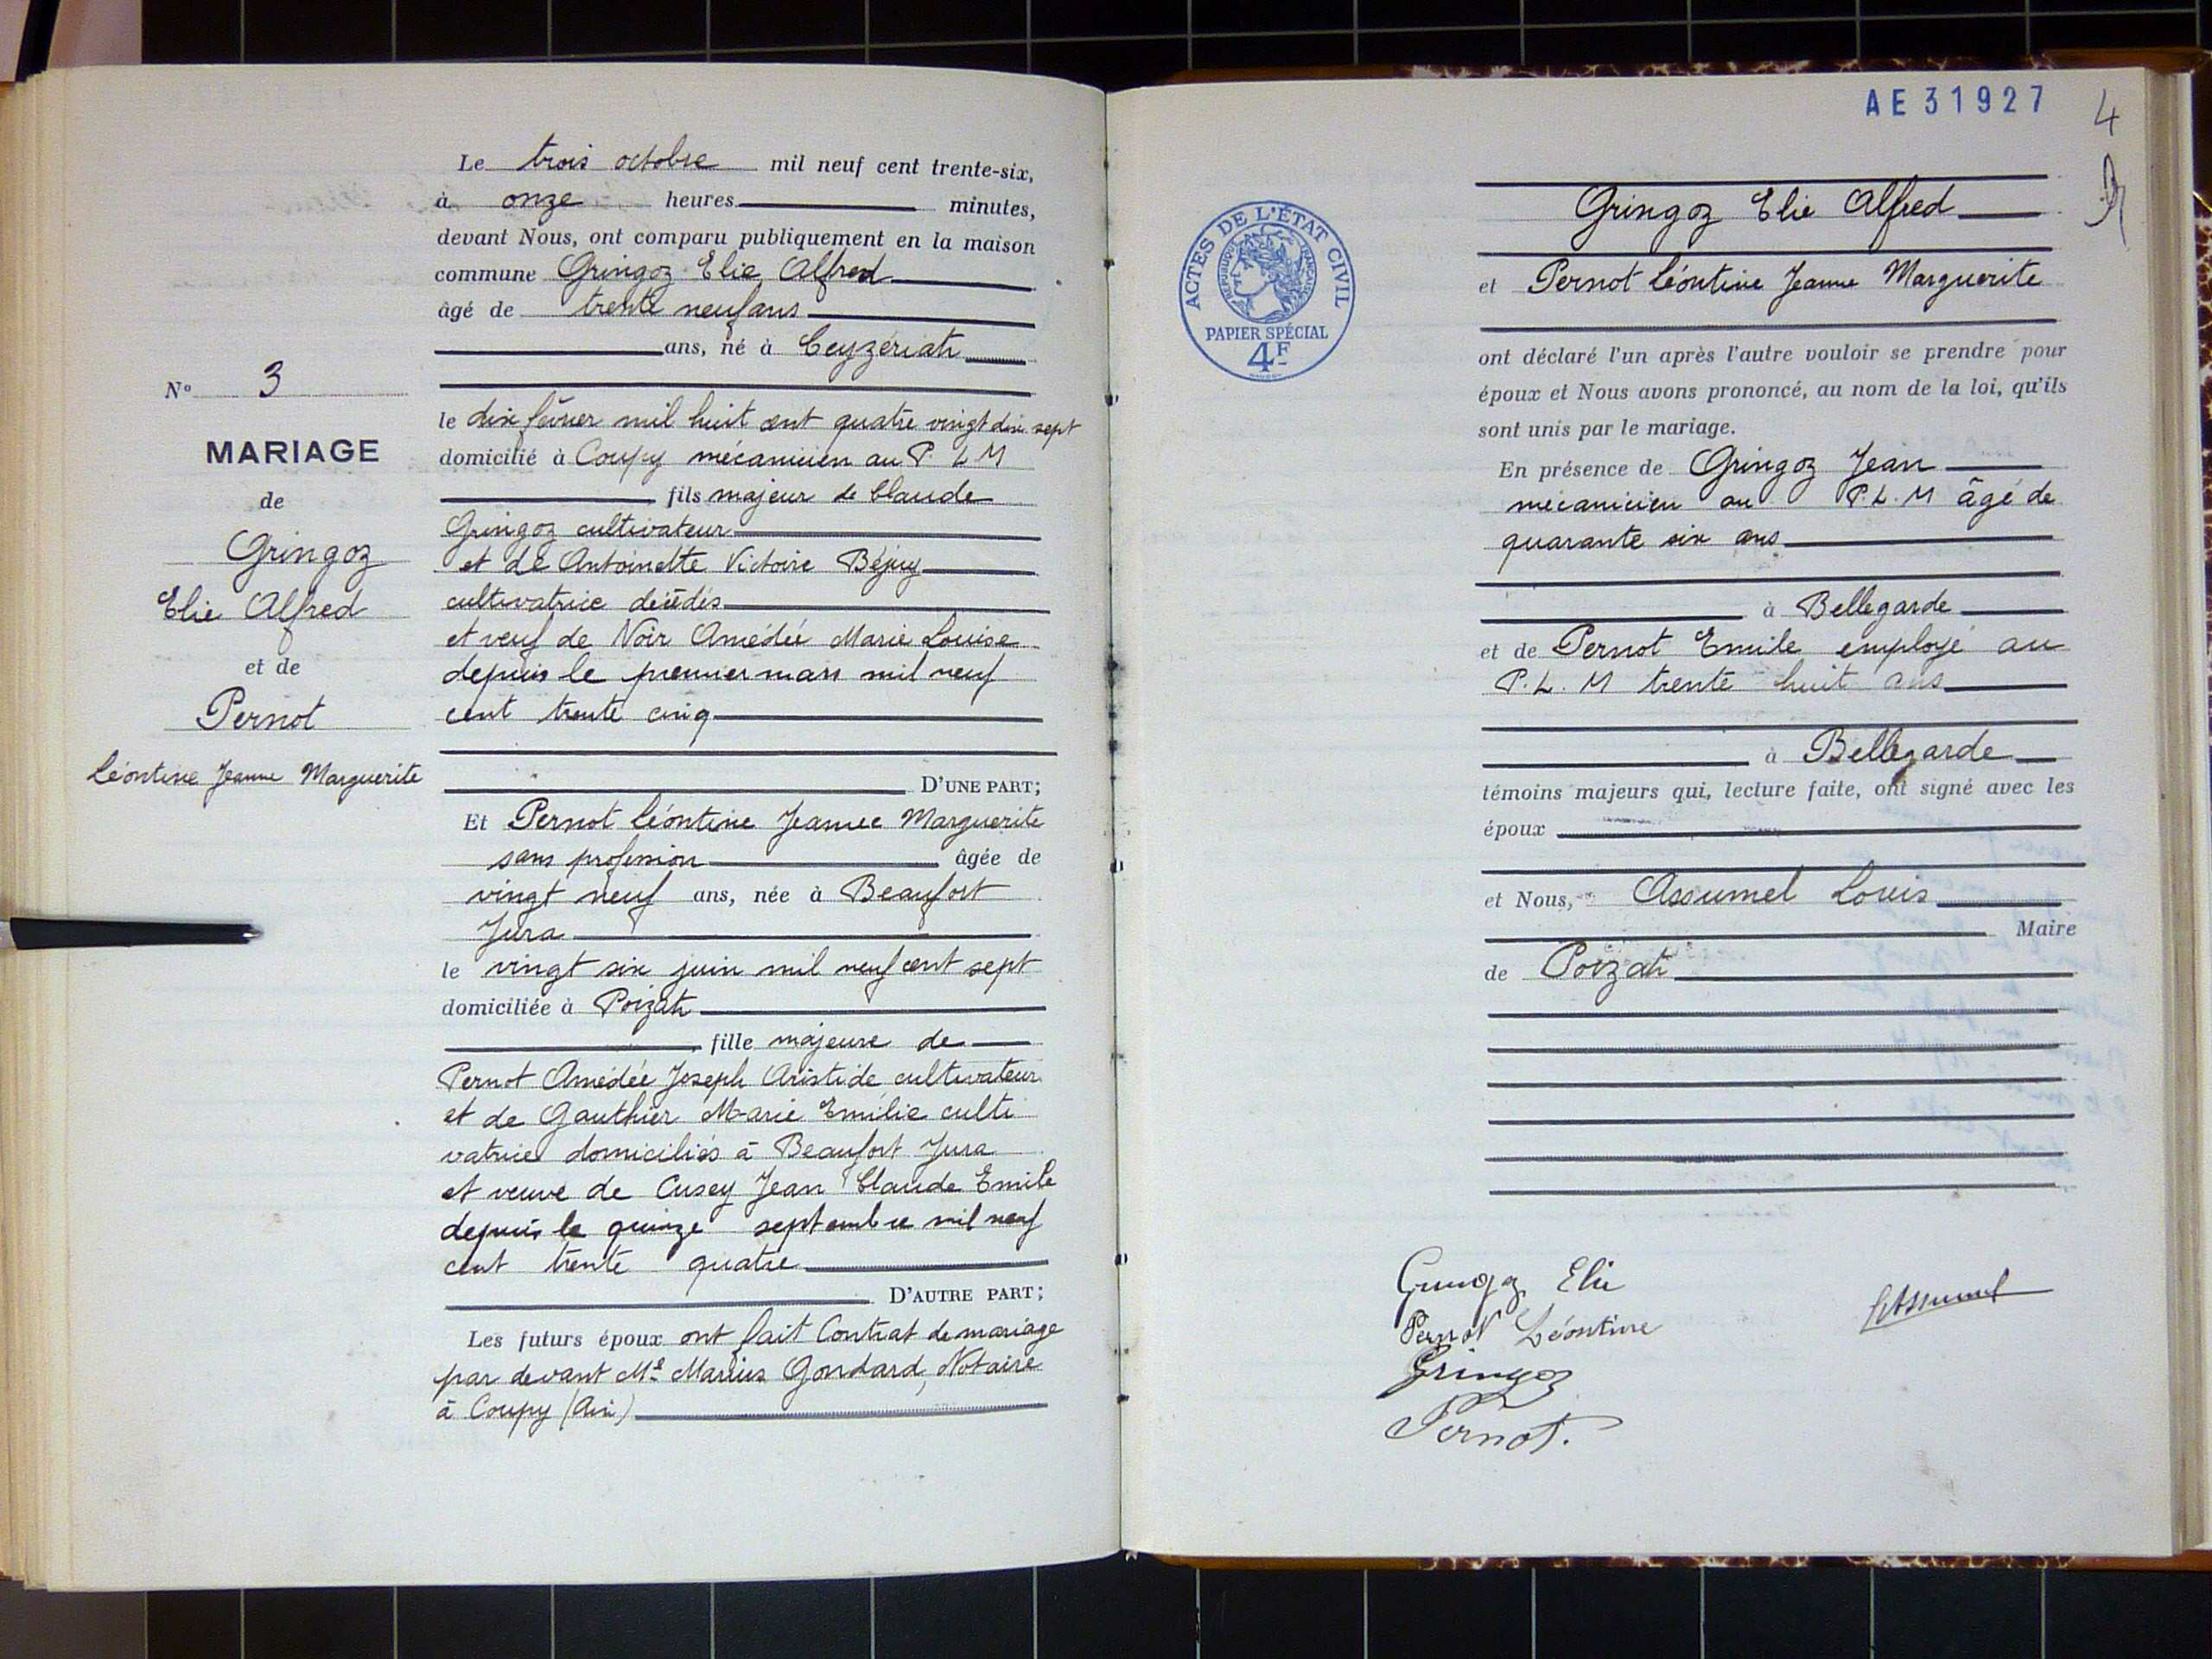 Le trois octobre mil neuf cent trente-six,
à onze heures minutes,
devant Nous, ont comparu publiquement en la maison
commune Gringoz Elie Alfred
âgé de trente neuf ans
ans, né à Ceyzériat
le dix février mil huit cent quatre vingt dix sept
domicilié à Coupy mécanicien au P. L M
fils majeur de Claude
Gringoz cultivateur
et de Antoinette Victoire Béjuy
cultivatrice décédés
et veuf de Noir Amédée Marie Louise
depuis le premier mars mil neuf
cent trente cinq
D'UNE PART;
Et Pernot Léontine Jeanne Marguerite
sans profession âgée de
vingt neuf ans, née à Beaufort
Jura
le vingt six juin mil neuf cent sept
domiciliée à Poizat
fille majeure de
Pernot Amédée Joseph Aristide cultivateur
et de Gauthier Marie Emilie culti
vatrice domiciliés à Beaufort Jura
et veuve de Cusey Jean Claude Emile
depuis le quinze septembre mil neuf
cent trente quatre
D'AUTRE PART;
Les futurs époux ont fait Contrat de mariage
par devant Me Marius Gondard, Notaire
à Coupy (Ain)
N° 3
MARIAGE
de
Gringoz
Elie Alfred
et de
Pernot
Léontine Jeanne Marguerite
AE31927
4
ACTES DE L'ÉTAT CIVIL
REPUBLIQUE FRANÇAISE
PAPIER SPÉCIAL
4F
Gringoz Elie Alfred
et Pernot Léontine Jeanne Marguerite
ont déclaré l'un après l'autre vouloir se prendre pour
époux et Nous avons prononcé, au nom de la loi, qu'ils
sont unis par le mariage.
En présence de Gringoz Jean
mécanicien au P. L. M âgé de
quarante six ans
à Bellegarde
et de Pernot Emile employé au
P. L. M trente huit ans
à Bellegarde
témoins majeurs qui, lecture faite, ont signé avec les
époux
et Nous, Assumel Louis
Maire
de Poizat
Gringoz Elie
Pernot Léontine
Gringoz
Pernot.
LAssumel